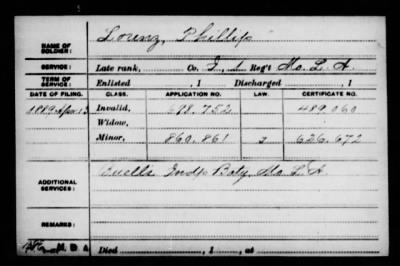 NAME OF SOLDIER: Lorenz, Phillip
SERVICE: Late rank, Co. I, 1 Reg't Mo. L. A.
TERM OF SERVICE: Enlisted , 1 Discharged , 1
DATE OF FILING. CLASS. APPLICATION NO. LAW. CERTIFICATE NO.
1889 Apr 13 Invalid, 698.752 489.060
Widow,
Minor, 860.861 3 626.672
ADDITIONAL SERVICES: Buells Indp Baty, Mo. L. A.
REMARKS:
Died , 1 , at